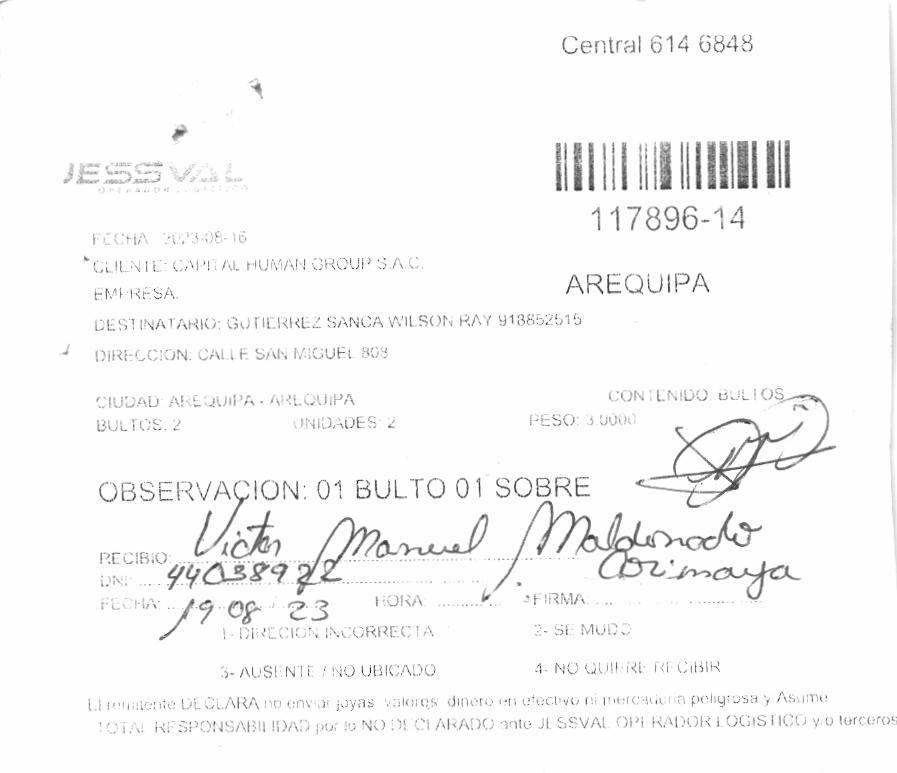 Central 614 6848
JESSVAL
OPERADOR LOGISTICO
117896-14
FECHA: 2023-08-16
CLIENTE: CAPITAL HUMAN GROUP S.A.C.
AREQUIPA
EMPRESA.
DESTINATARIO: GUTIERREZ SANCA WILSON RAY 918852515
DIRECCION: CALLE SAN MIGUEL 808
CIUDAD: AREQUIPA - AREQUIPA CONTENIDO: BULTOS
BULTOS: 2 UNIDADES: 2 PESO: 3.0000
OBSERVACION: 01 BULTO 01 SOBRE
RECIBIO: Victor Manuel Maldonado
Corimaya
DNI:
FECHA: 19 08 23 HORA: FIRMA:
1- DIRECION INCORRECTA 2- SE MUDO
3- AUSENTE / NO UBICADO 4- NO QUIERE RECIBIR
El remitente DECLARA no enviar joyas valores dinero en efectivo ni mercaderia peligrosa y Asume
TOTAL RESPONSABILIDAD por lo NO DECLARADO ante JESSVAL OPERADOR LOGISTICO y/o terceros